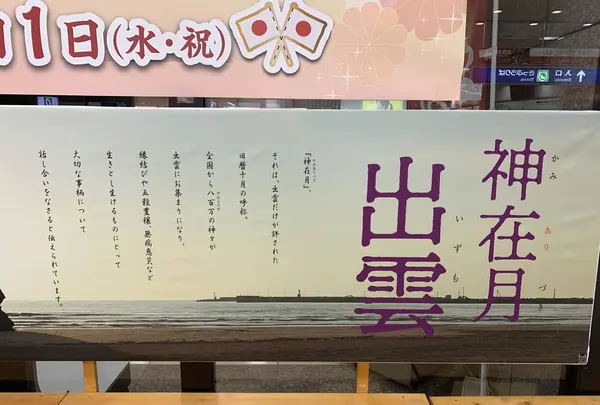 1日(水・祝)
入口
神在月
かみ あり づき
出雲
いずも
『神在月』、
かみありづき
それは、出雲だけが許された
旧暦十月の呼称。
全国から八百万の神々が
やおよろず
出雲にお集まりになり、
縁結びや五穀豊穣、無病息災など
生きとし生けるものにとって
大切な事柄について
話し合いをなさると伝えられています。